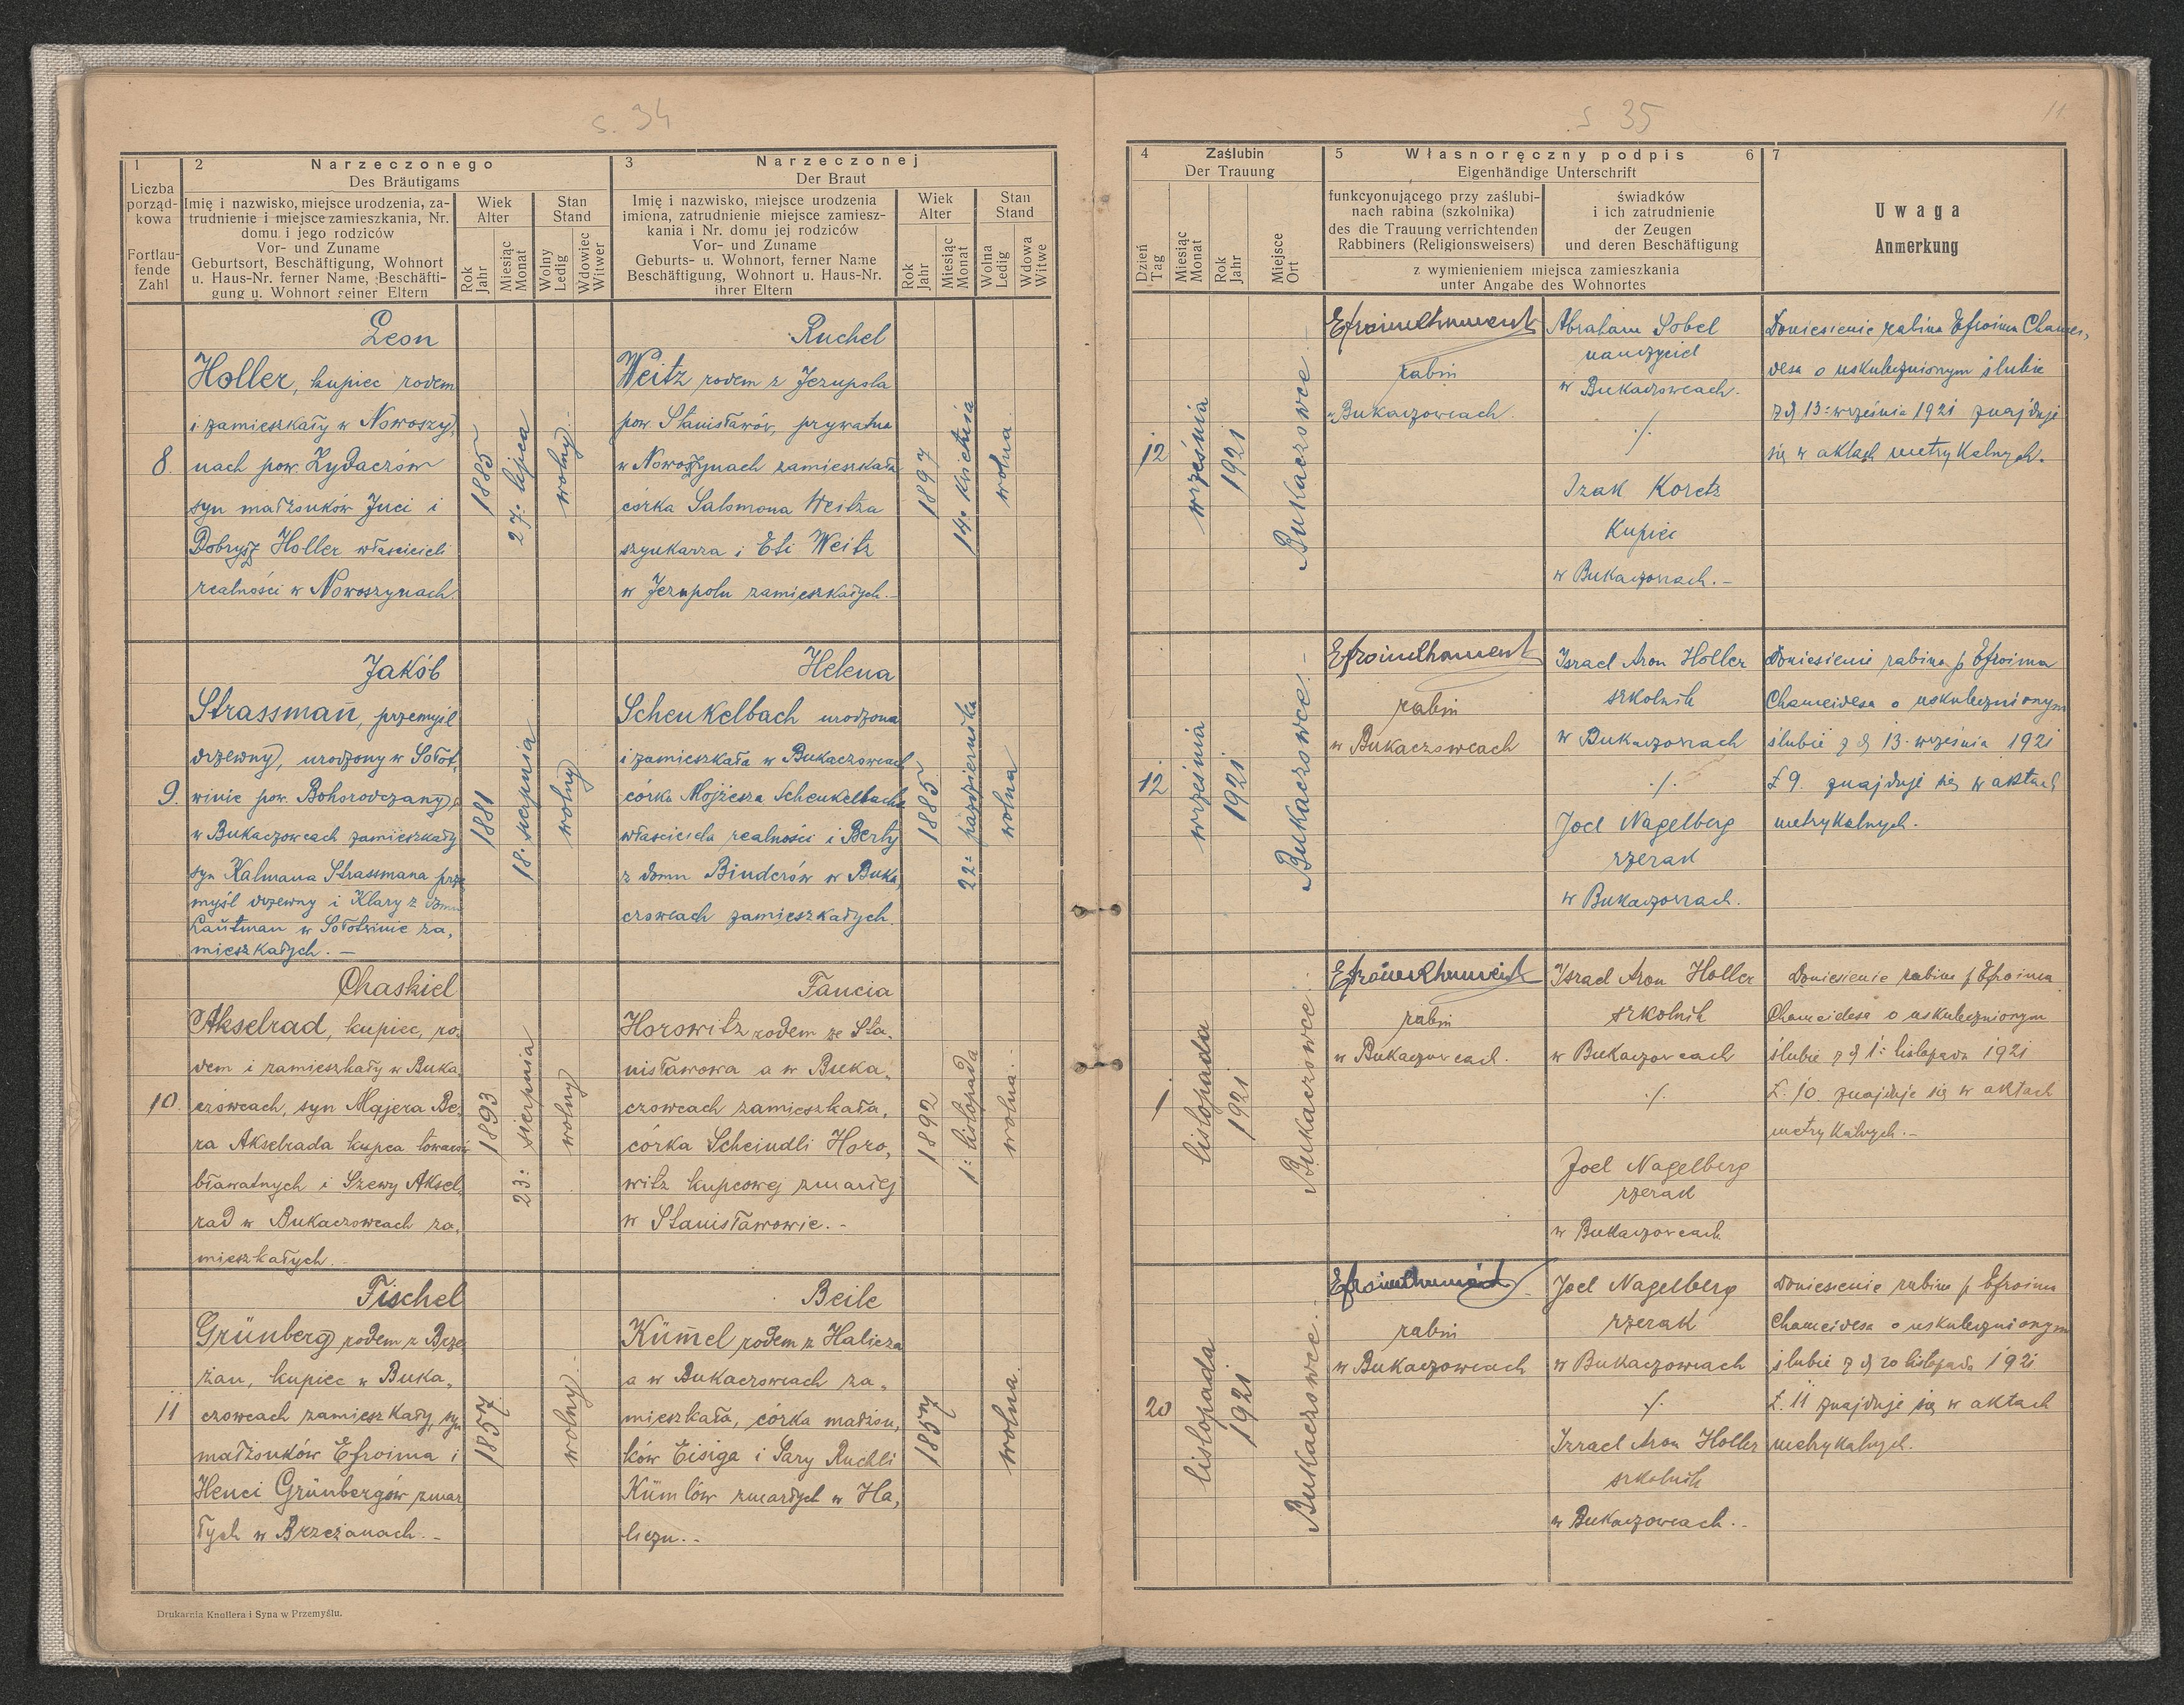 s. 34
1
Liczba
porząd-
kowa
Fortlau-
fende
Zahl
2
Narzeczonego
Des Bräutigams
Imię i nazwisko, miejsce urodzenia, za-
trudnienie i miejsce zamieszkania, Nr.
domu i jego rodziców
Vor- und Zuname
Geburtsort, Beschäftigung, Wohnort
u. Haus-Nr. ferner Name, Beschäfti-
gung u. Wohnort seiner Eltern
Wiek
Alter
Rok
Jahr
Miesiąc
Monat
Stan
Stand
Wolny
Ledig
Wdowiec
Witwer
3
Narzeczonej
Der Braut
Imię i nazwisko, miejsce urodzenia
imiona, zatrudnienie miejsce zamiesz-
kania i Nr. domu jej rodziców
Vor- und Zuname
Geburts- u. Wohnort, ferner Name
Beschäftigung, Wohnort u. Haus-Nr.
ihrer Eltern
Wiek
Alter
Rok
Jahr
Miesiąc
Monat
Stan
Stand
Wolna
Ledig
Wdowa
Witwe
8.
Leon
Holler, kupiec rodem
i zamieszkały w Nowoszy,
nach pow. Żydaczów
syn małżonków Juci i
Dobrysz Holler właścicieli
realności w Nowoszynach.
1885
27. lipca
wolny.
Ruchel
Weitz rodem z Jezupola
pow. Stanisławów, prywatna
w Nowoszynach zamieszkała
córka Salomona Weitza
szynkarza i Eti Weitz
w Jezupolu zamieszkałych.-
1897
14. kwietnia
wolna.
9.
Jakób
Strassmañ, przemysł
drzewny, urodzony w Sołot,
winie pow. Bohorodczany,
w Bukaczowcach zamieszkały
syn Kalmana Strassmana prze
mysł drzewny i Klary z domu
Lautman w Sołotwinie za,
mieszkałych. —
1881
18. sierpnia
wolny
Helena
Schenkelbach urodzona
i zamieszkała w Bukaczowcach
córka Mojżesza Schenkelbacha
właściciela realności i Berty
z domu Binderów w Buka,
czowcach zamieszkałych.
1885
22. października
wolna
10.
Chaskiel
Akselrad, kupiec, ro,
dem i zamieszkały w Buka,
czowcach, syn Majera Be,
ra Akselrada kupca towarów
bławatnych i Szewy Aksel,
rad w Bukaczowcach za,
mieszkałych.
1893
23. sierpnia
wolny
Fancia
Horowitz rodem ze Sta,
nisławowa a w Buka,
czowcach zamieszkała,
córka Scheindli Horo,
witz kupcowej zmarłej
w Stanisławowie.-
1892
1. listopada
wolna.
11
Fischel
Grünberg rodem z Brze
żan, kupiec w Buka,
czowcach zamieszkały, syn
małżonków Efroima i
Henci Grünbergów zmar
łych w Brzeżanach.-
1857
wolny.
Beile
Küm̄el rodem z Halicza
a w Bukaczowcach za,
mieszkała, córka małżon,
ków Eisiga i Sary Ruchli
Kümlów zmarłych w Ha,
liczu.-
1857
wolna.
Drukarnia Knollera i Syna w Przemyślu.
s 35
11
4
Zaślubin
Der Trauung
Dzień
Tag
Miesiąc
Monat
Rok
Jahr
Miejsce
Ort
5
Własnoręczny podpis
6
Eigenhändige Unterschrift
funkcyonującego przy zaślubi-
nach rabina (szkolnika)
des die Trauung verrichtenden
Rabbiners (Religionsweisers)
świadków
i ich zatrudnienie
der Zeugen
und deren Beschäftigung
z wymienieniem miejsca zamieszkania
unter Angabe des Wohnortes
7
Uwaga
Anmerkung
12
września
1921
Bukaczowce.
rabin
w Bukaczowcach.
Abraham Sobel
nauczyciel
w Bukaczowcach.
./.
Izak Koretz
Kupiec
w Bukaczowcach.-
Doniesienie rabina Efroima Chamei,
desa o uskutecznionym ślubie
z d 13. września 1921 znajduje
się w aktach metrykalnych.
12
września
1921
Bukaczowce.
rabin
w Bukaczowcach
Israel Aron Holler
szkolnik
w Bukaczowcach
./.
Joel Nagelberg
rzezak
w Bukaczowcach.
Doniesienie rabina p Efroima
Chameidesa o uskutecznionym
ślubie z d 13. września 1921
L 9. znajduje się w aktach
metrykalnych.
1
listopada
1921
Bukaczowce.
rabin
w Bukaczowcach.
Israel Aron Holler
szkolnik
w Bukaczowcach
./.
Joel Nagelberg
rzezak
w Bukaczowcach
Doniesienie rabina p Efroima
Chameidesa o uskutecznionym
ślubie z d 1. listopada 1921
L. 10. znajduje się w aktach
metrykalnych.-
20
listopada
1921
Bukaczowce.
rabin
w Bukaczowcach
Joel Nagelberg
rzezak
w Bukaczowcach
./.
Izrael Aron Holler
szkolnik
w Bukaczowcach.-
Doniesienie rabina p Efroima
Chameidesa o uskutecznionym
ślubie z d 20 listopada 1921
L. 11 znajduje się w aktach
metrykalnych.